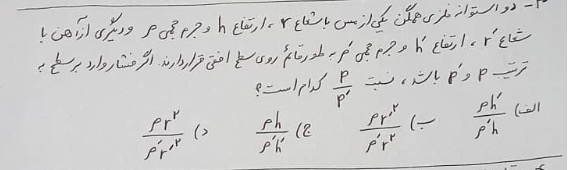 ۳- دو استوانه فلزی همگن یکی از مس با شعاع r ، ارتفاع h و جرم حجمی ρ و دیگری از آهن با
شعاع r′ ، ارتفاع h′ و جرم حجمی ρ′ به طور قائم روی سطح افقی قرار دارند. اگر فشار وارد بر سطح به
ترتیب P و P′ باشد ، نسبت P/P′ کدام است؟
الف) ρh′/ρ′h ب) ρr′²/ρ′r² ج) ρh/ρ′h′ د) ρr²/ρ′r′²